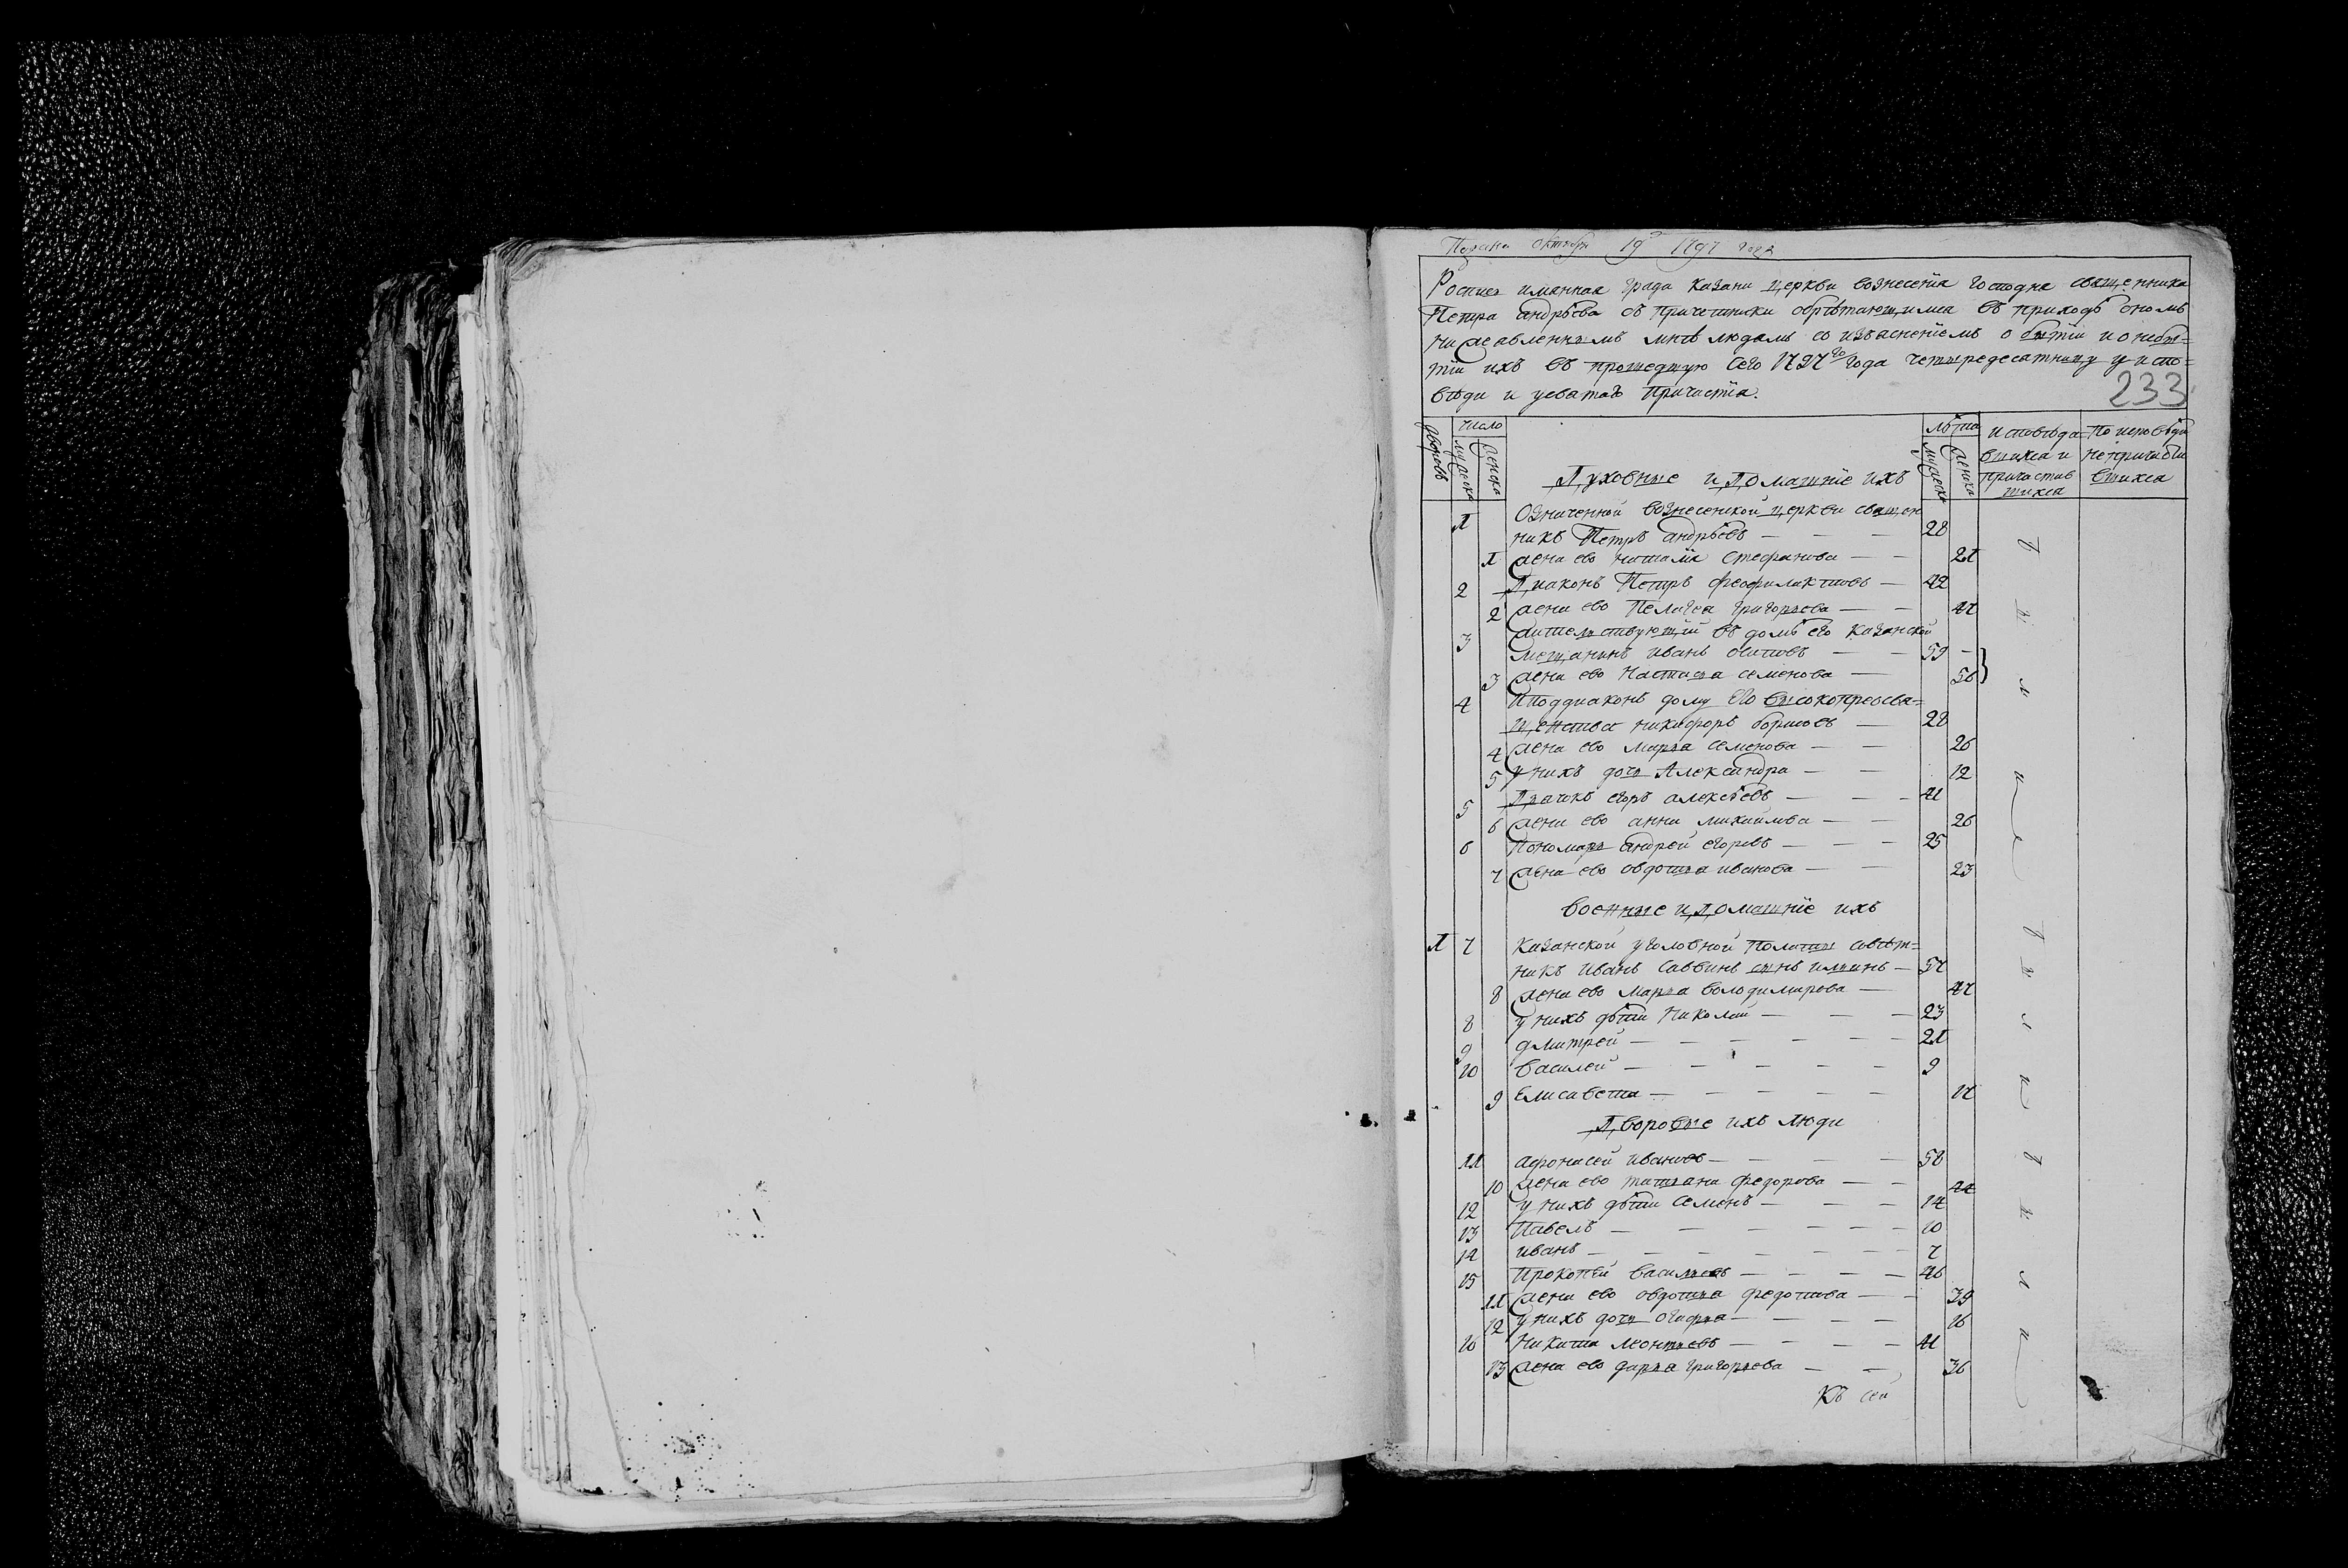 Подана октября 19 1797 года
Роспись имянная града Казани церкви вознесенїя господня священника
Петра андрѣева съ причетники обрѣтающимся въ приходѣ ономъ
нижеавленнымъ людямъ со изъясненїемъ о бытїи и о небы=
тїи ихъ въ прошедшую сего 1797 го года четыредесятницу у испо=
вѣди и у святаго причастїя.
233
дворовъ
число
мужеска
женска
лѣта
мужеска
женска
Исповѣда
вшихся и
причастив
шихся
По исповѣди
непричасти
вшихся
Духовные и домашнїе ихъ
1 Означенной вознесенской церкви священ
никъ Петръ андрѣевъ — 28
1 жена ево наталïя стефанова — 21
2 Диаконъ Петръ феофилактовъ — 42
2 жена ево Пелагея григорьева — 47
3 жительствующїй въ домѣ его казанской
мещанинъ иванъ осиповъ — 59
3 жена ево настасья семенова — 56
4 Иподдиаконъ дому Его высокопреосвя=
щенства никифоръ борисовъ — 28
4 жена ево марья семенова — 26
5 у нихъ дочь Александра — 12
5 Дьячокъ егоръ алексѣевъ — 41
6 жена ево анна михаилова — 26
6 Пономарь андрей егоровъ — 25
7 жена ево овдотья иванова — 23
военные и домашнїе ихъ
1 7 Казанской уголовной полаты совѣт=
никъ иванъ саввинъ сынъ ильинъ — 57
8 жена ево марья володимирова — 47
8 у нихъ дѣти николай — 23
9 дмитрей — 21
10 василей — 9
9 Елисавета — 17
Дворовые ихъ люди
11 афонасей ивановъ — 58
10 жена ево татьяна федорова — 44
12 у нихъ дѣти семенъ — 14
13 Павелъ — 10
14 иванъ — 7
15 Прокопей васильевъ — 46
11 жена ево овдотья федотова — 39
12 у нихъ дочь — 16
16 Никита леонтьевъ — 41
13 жена ево дарья григорьева — 36
в
ы
л
и
в
ы
л
и
в
ы
л
и
Къ сей